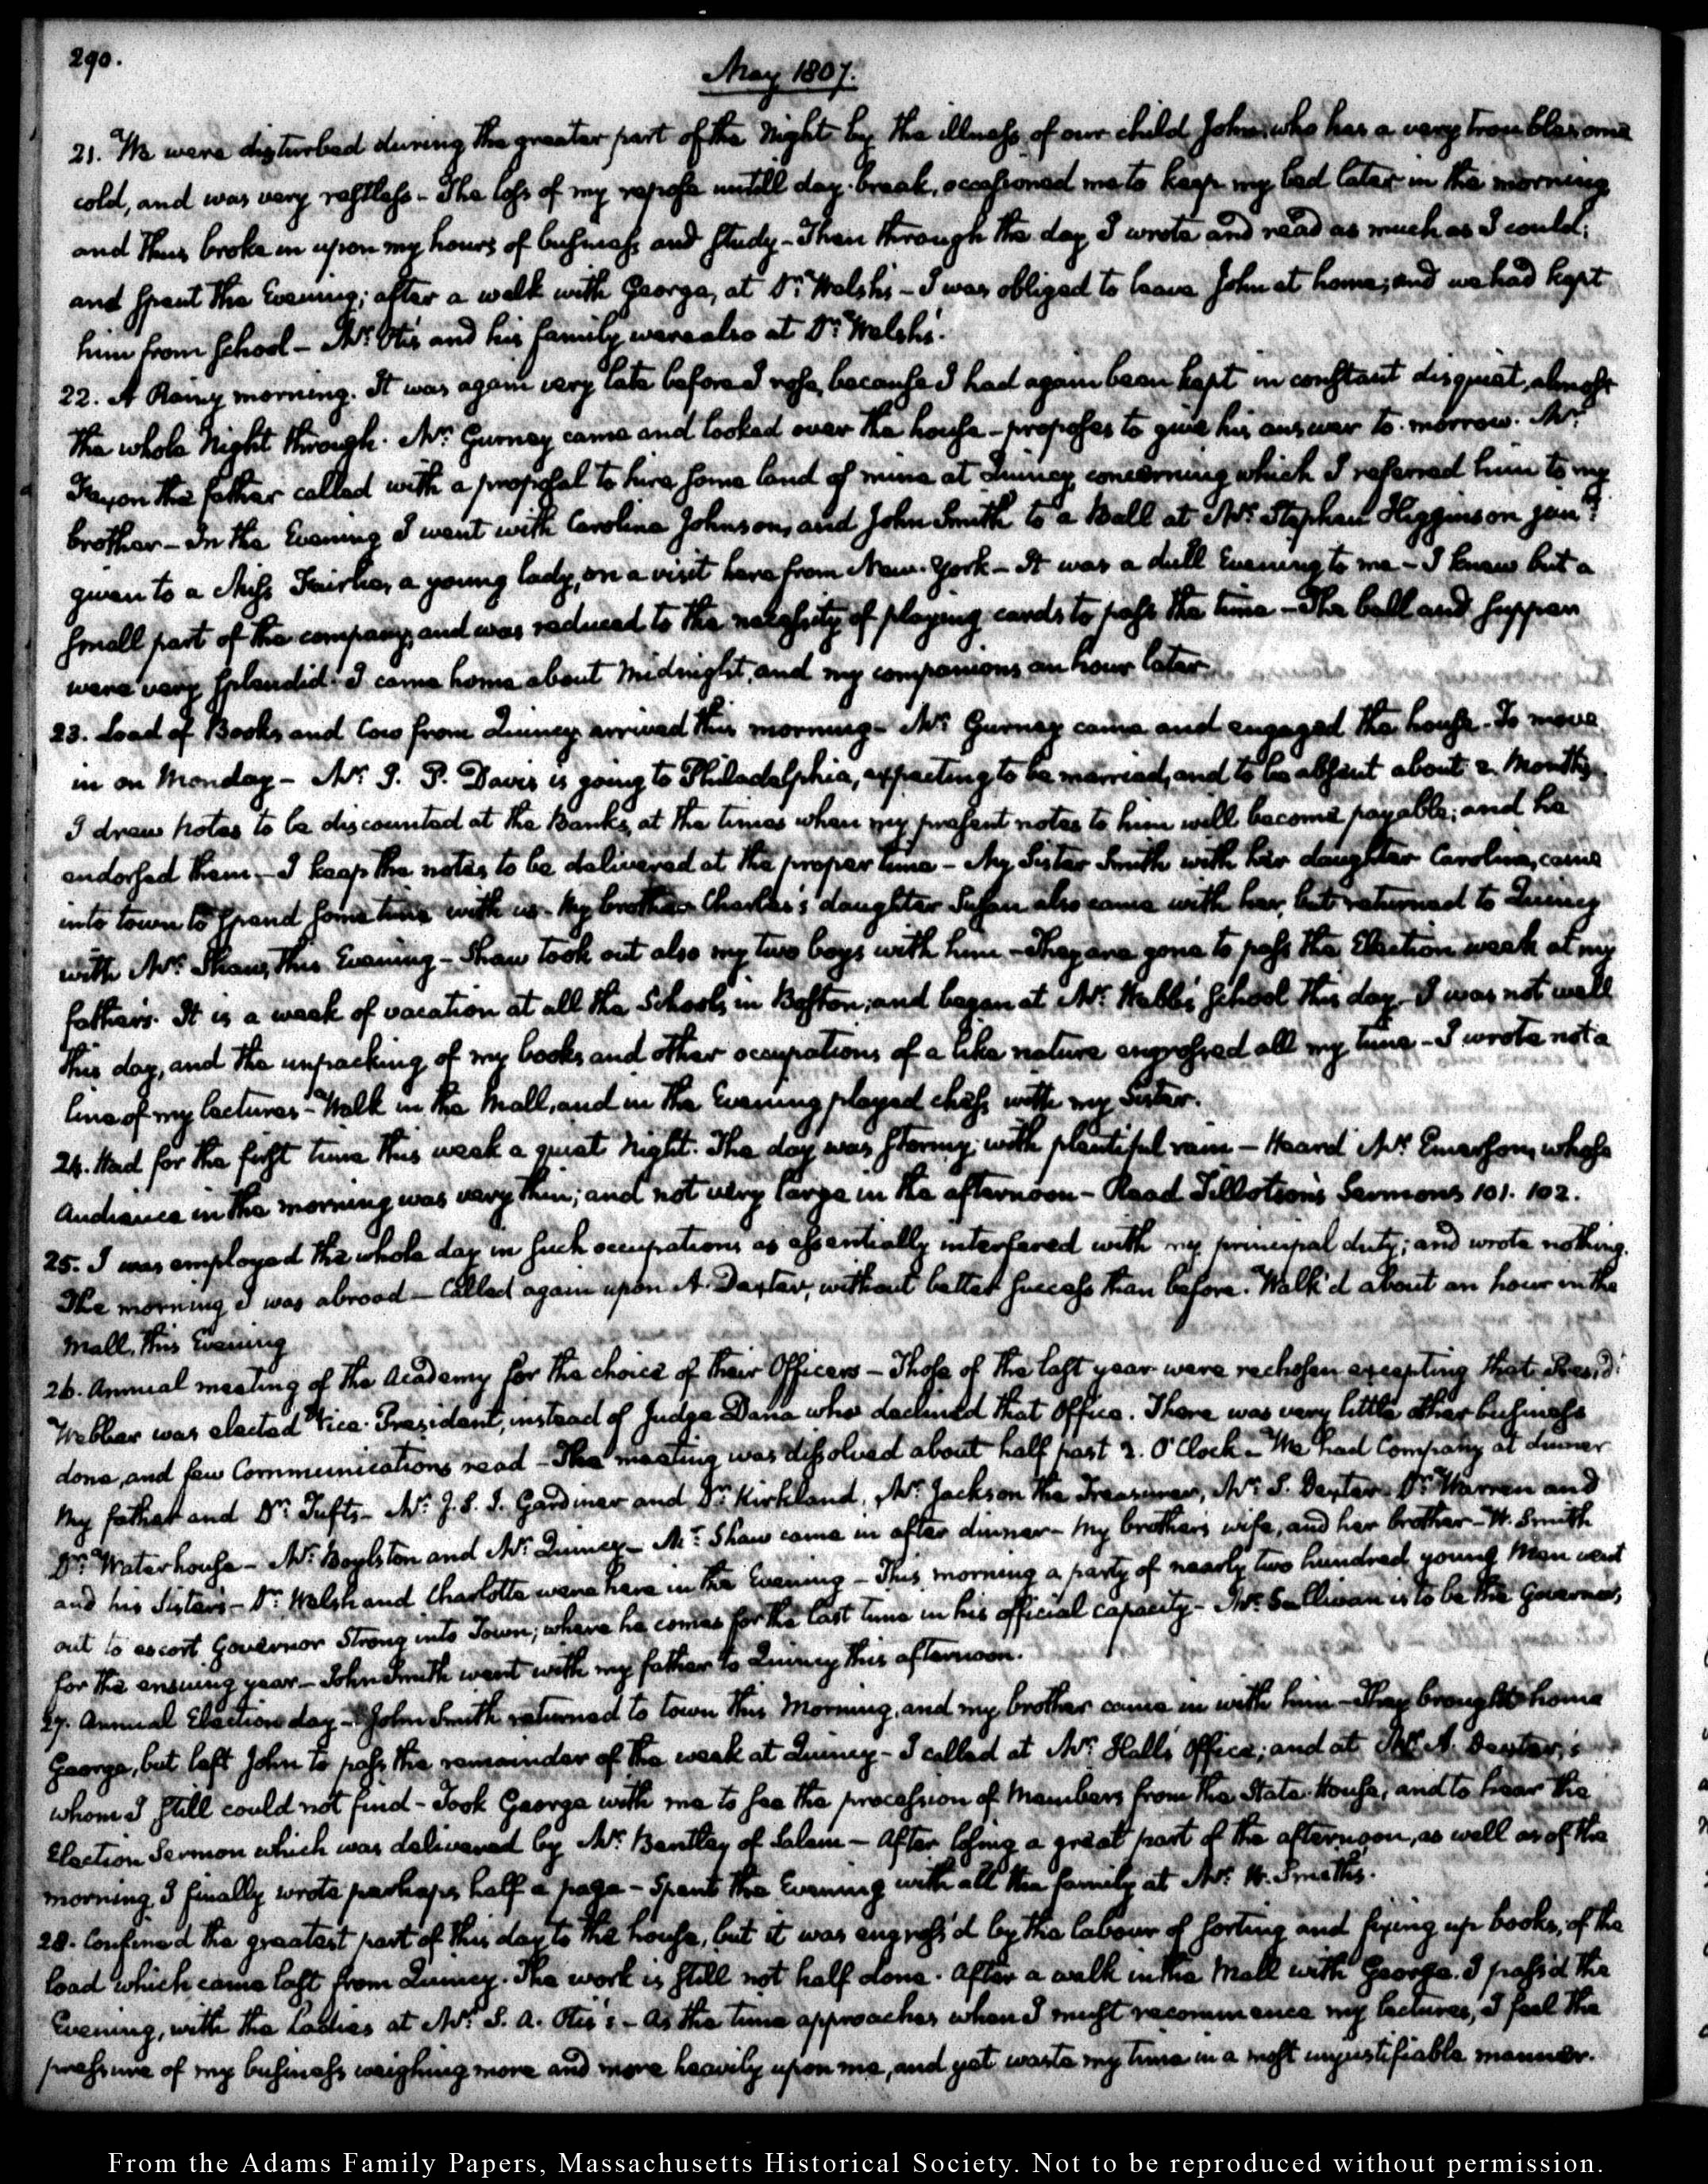 290.
May 1807.
21. We were disturbed during the greater part of the Night by the illness of our child John, who has a very troublesome
cold, and was very restless - The loss of my repose untill day-break, occasioned me to keep my bed later in the morning
and thus broke in upon my hours of business and study - Then through the day I wrote and read as much as I could;
and spent the Evening; after a walk with George, at Dr. Welsh's - I was obliged to leave John at home; and we had kept
him from School - Mr. Otis and his family were also at Dr. Welsh's.
22. A Rainy morning. It was again very late before I rose, because I had again been kept in constant disquiet, almost
the whole Night through. Mr. Gurney came and looked over the house - proposes to give his answer to-morrow. Mr.
the father called with a proposal to hire some land of mine at Quincy concerning which I referred him to my
brother - In the Evening I went with Caroline Johnson, and John Smith to a Ball at Mr. Stephen Higginson junr.
given to a Miss Fairlie, a young lady, on a visit here from New-York - It was a dull Evening to me - I knew but a
small part of the company, and was reduced to the necessity of playing cards to pass the time - The ball and supper
were very splendid. I came home about Midnight, and my companions an hour later.
23. Load of Books and Cow from Quincy arrived this morning - Mr. Gurney came and engaged the house. To move
in on Monday - Mr. I. P. Davis is going to Philadelphia, expecting to be married, and to be absent about 2. Months.
I drew notes to be discounted at the Banks, at the times when my present notes to him will become payable; and he
endorsed them - I keep the notes to be delivered at the proper time - My Sister Smith with her daughter Caroline, came
into town to spend some time with us. My brother Charles's daughter Susan also came with her, but returned to Quincy
with Mr. Shaw, this Evening - Shaw took out also my two boys with him - They are gone to pass the Election week at my
father's. It is a week of vacation at all the Schools in Boston; and began at Mr. Webb's School this day. I was not well
this day, and the unpacking of my books and other occupations of a like nature engrossed all my time - I wrote not a
line of my lectures - Walk in the Mall, and in the Evening played chess with my Sister.
24. Had for the first time this week a quiet Night. The day was stormy, with plentiful rain - Heard Mr. Emerson, whose
Audience in the morning was very thin; and not very large in the afternoon - Read Tillotson's Sermons 101. 102.
25. I was employed the whole day in such occupations as essentially interfered with my principal duty; and wrote nothing.
The morning I was abroad - Called again upon A. Dexter, without better success than before. Walk'd about an hour in the
Mall, this Evening
26. Annual meeting of the Academy for the choice of their Officers - Those of the last year were rechosen excepting that Presidt.
Webber was elected Vice-President, instead of Judge Dana who declined that Office. There was very little other business
done, and few Communications read - The meeting was dissolved about half past 2. O'Clock - We had Company at dinner
My father and Dr. Tufts - Mr. J. S. J. Gardiner and Dr. Kirkland, Mr. Jackson the Treasurer, Mr. S. Dexter. Dr. Warren and
Dr. Waterhouse - Mr. Boylston and Mr. Quincy - Mr. Shaw came in after dinner - My brother's wife, and her brother - W. Smith
and his Sisters - Dr. Welsh and Charlotte were here in the Evening - This morning a party of nearly two hundred young Men went
out to escort Governor Strong into Town; where he comes for the last time in his official capacity - Mr. Sullivan is to be the Governor,
for the ensuing year - John Smith went with my father to Quincy this afternoon.
27. Annual Election day - John Smith returned to town this Morning, and my brother came in with him - They brought home
George, but left John to pass the remainder of the week at Quincy - I called at Mr. Hall's Office; and at Mr. A. Dexter's
whom I still could not find - Took George with me to see the procession of Members from the State-House, and to hear the
Election Sermon which was delivered by Mr. Bentley of Salem - After losing a great part of the afternoon, as well as of the
morning I finally wrote perhaps half a page - Spent the Evening with all the family at Mr. W. Smith's.
28. Confined the greatest part of this day to the house, but it was engross'd by the labour of sorting and fixing up books, of the
load which came last from Quincy. The work is still not half done. After a walk in the Mall with George. I pass'd the
Evening, with the Ladies at Mr. S. A. Otis's - As the time approaches when I must recommence my lectures, I feel the
pressure of my business weighing more and more heavily upon me, and yet waste my time in a most unjustifiable manner.
From the Adams Family Papers, Massachusetts Historical Society. Not to be reproduced without permission.